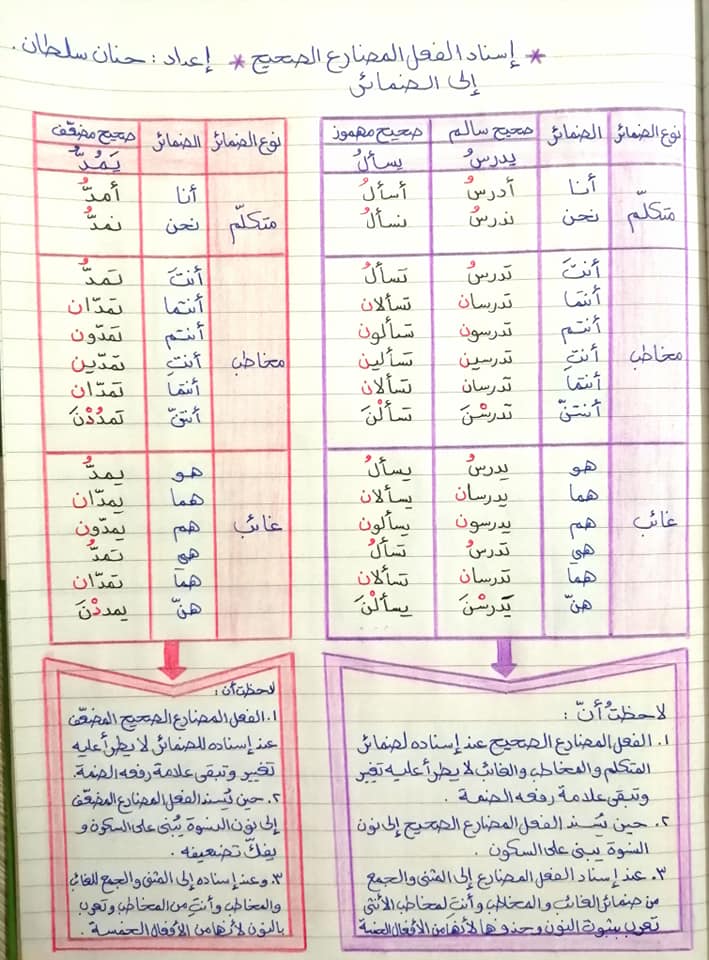 * إسناد الفعل المضارع الصحيح * إعداد : حنان سلطان .
إلى الضمائر
نوع الضمائر الضمائر صحيح سالم صحيح مهموز
يدرسُ يسألُ
أنا أدرسُ أسألُ
متكلّم نحن ندرسُ نسألُ
أنتَ تدرسُ تسألُ
أنتما تدرسان تسألان
أنتم تدرسون تسألون
مخاطب أنتِ تدرسين تسألين
أنتما تدرسان تسألان
أنتنّ تدرسْنَ تسألْنَ
هو يدرسُ يسألُ
هما يدرسان يسألان
غائب هم يدرسون يسألون
هي تدرسُ تسألُ
هما تدرسان تسألان
هنّ يدرسْنَ يسألْنَ
لاحظتُ أنّ :
١. الفعل المضارع الصحيح عند إسناده لضمائر
المتكلم والمخاطب والغائب لا يطرأ عليه تغير
وتبقى علامة رفعه الضمة .
٢. حين يُسند الفعل المضارع الصحيح إلى نون
النسوة يبنى على السكون .
٣. عند إسناد الفعل المضارع إلى المثنى والجمع
من ضمائر الغائب والمخاطب وأنتِ لمخاطب الأنثى
تعرب بثبوت النون وحذفها لأنها من الأفعال الخمسة
نوع الضمائر الضمائر صحيح مضعّف
يَمُدُّ
أنا أمدُّ
متكلّم نحن نمدُّ
أنتَ تمدُّ
أنتما تمدّان
أنتم تمدّون
مخاطب أنتِ تمدّين
أنتما تمدّان
أنتنّ تمدُدْنَ
هو يمدُّ
هما يمدّان
غائب هم يمدّون
هي تمدُّ
هما تمدّان
هنّ يمددْنَ
لاحظت أن :
١. الفعل المضارع الصحيح المضعّف
عند إسناده للضمائر لا يطرأ عليه
تغيير وتبقى علامة رفعه الضمة.
٢. حين يُسند الفعل المضارع المضعّف
إلى نون النسوة يُبنى على السكون و
يفكّ تضعيفه .
٣. وعند إسناده إلى المثنى والجمع للغائب
والمخاطب وأنتِ من المخاطب وتعرب
بالنون لأنها من الأفعال الخمسة .